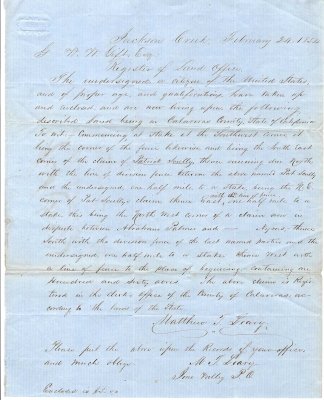 Jackson Creek, February 24, 1854
W. W. Gift Esq
Register of Land Office
The undersigned a citizen of the United States
and of proper age, and qualifications, have taken up
and enclosed and are now living upon the following
described land being in Calaveras County, State of California
To wit: Commencing at stake at the Southwest corner it
being the corner of the fence likewise and being the South East
corner of the claim of Patrick Scully, thence running due North
with the line of division fence between the above named Pat Scully
and the undersigned, one half mile to a stake being the N.E.
corner of Pat Scully's claim thence East, one half mile to a
with the line of fence
stake this being the North West corner of a claim now in
dispute between Abraham Palmer and — Myers, thence
South with the division fence of the last named parties and the
undersigned one half mile to a stake thence West with
a line of fence to the place of beginning, containing one
Hundred and sixty acres. The above claim is Regis-
tered in the clerks office of the County of Calaveras ac-
cording to the laws of the State
Matthew T. Leary
Please put the above upon the Records of your office,
and much oblige
M. T. Leary
Ione Valley P.O
Enclosed is